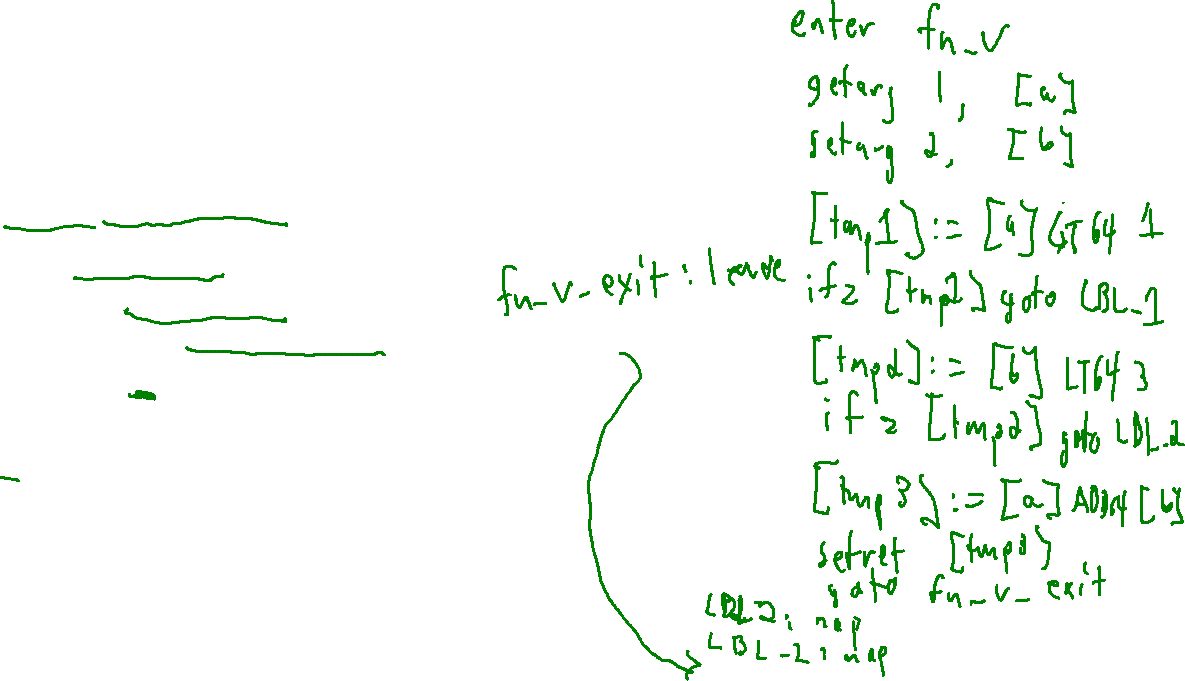 enter fn_v
getarg 1, [a]
setarg 2, [b]
[tmp1] := [a] GT64 1
fn_v_exit : leave
ifz [tmp1] goto LBL_1
[tmp2] := [b] LT64 3
ifz [tmp2] goto LBL_2
[tmp3] := [a] ADD64 [b]
setret [tmp3]
goto fn_v_exit
LBL2: nop
LBL_1: nop